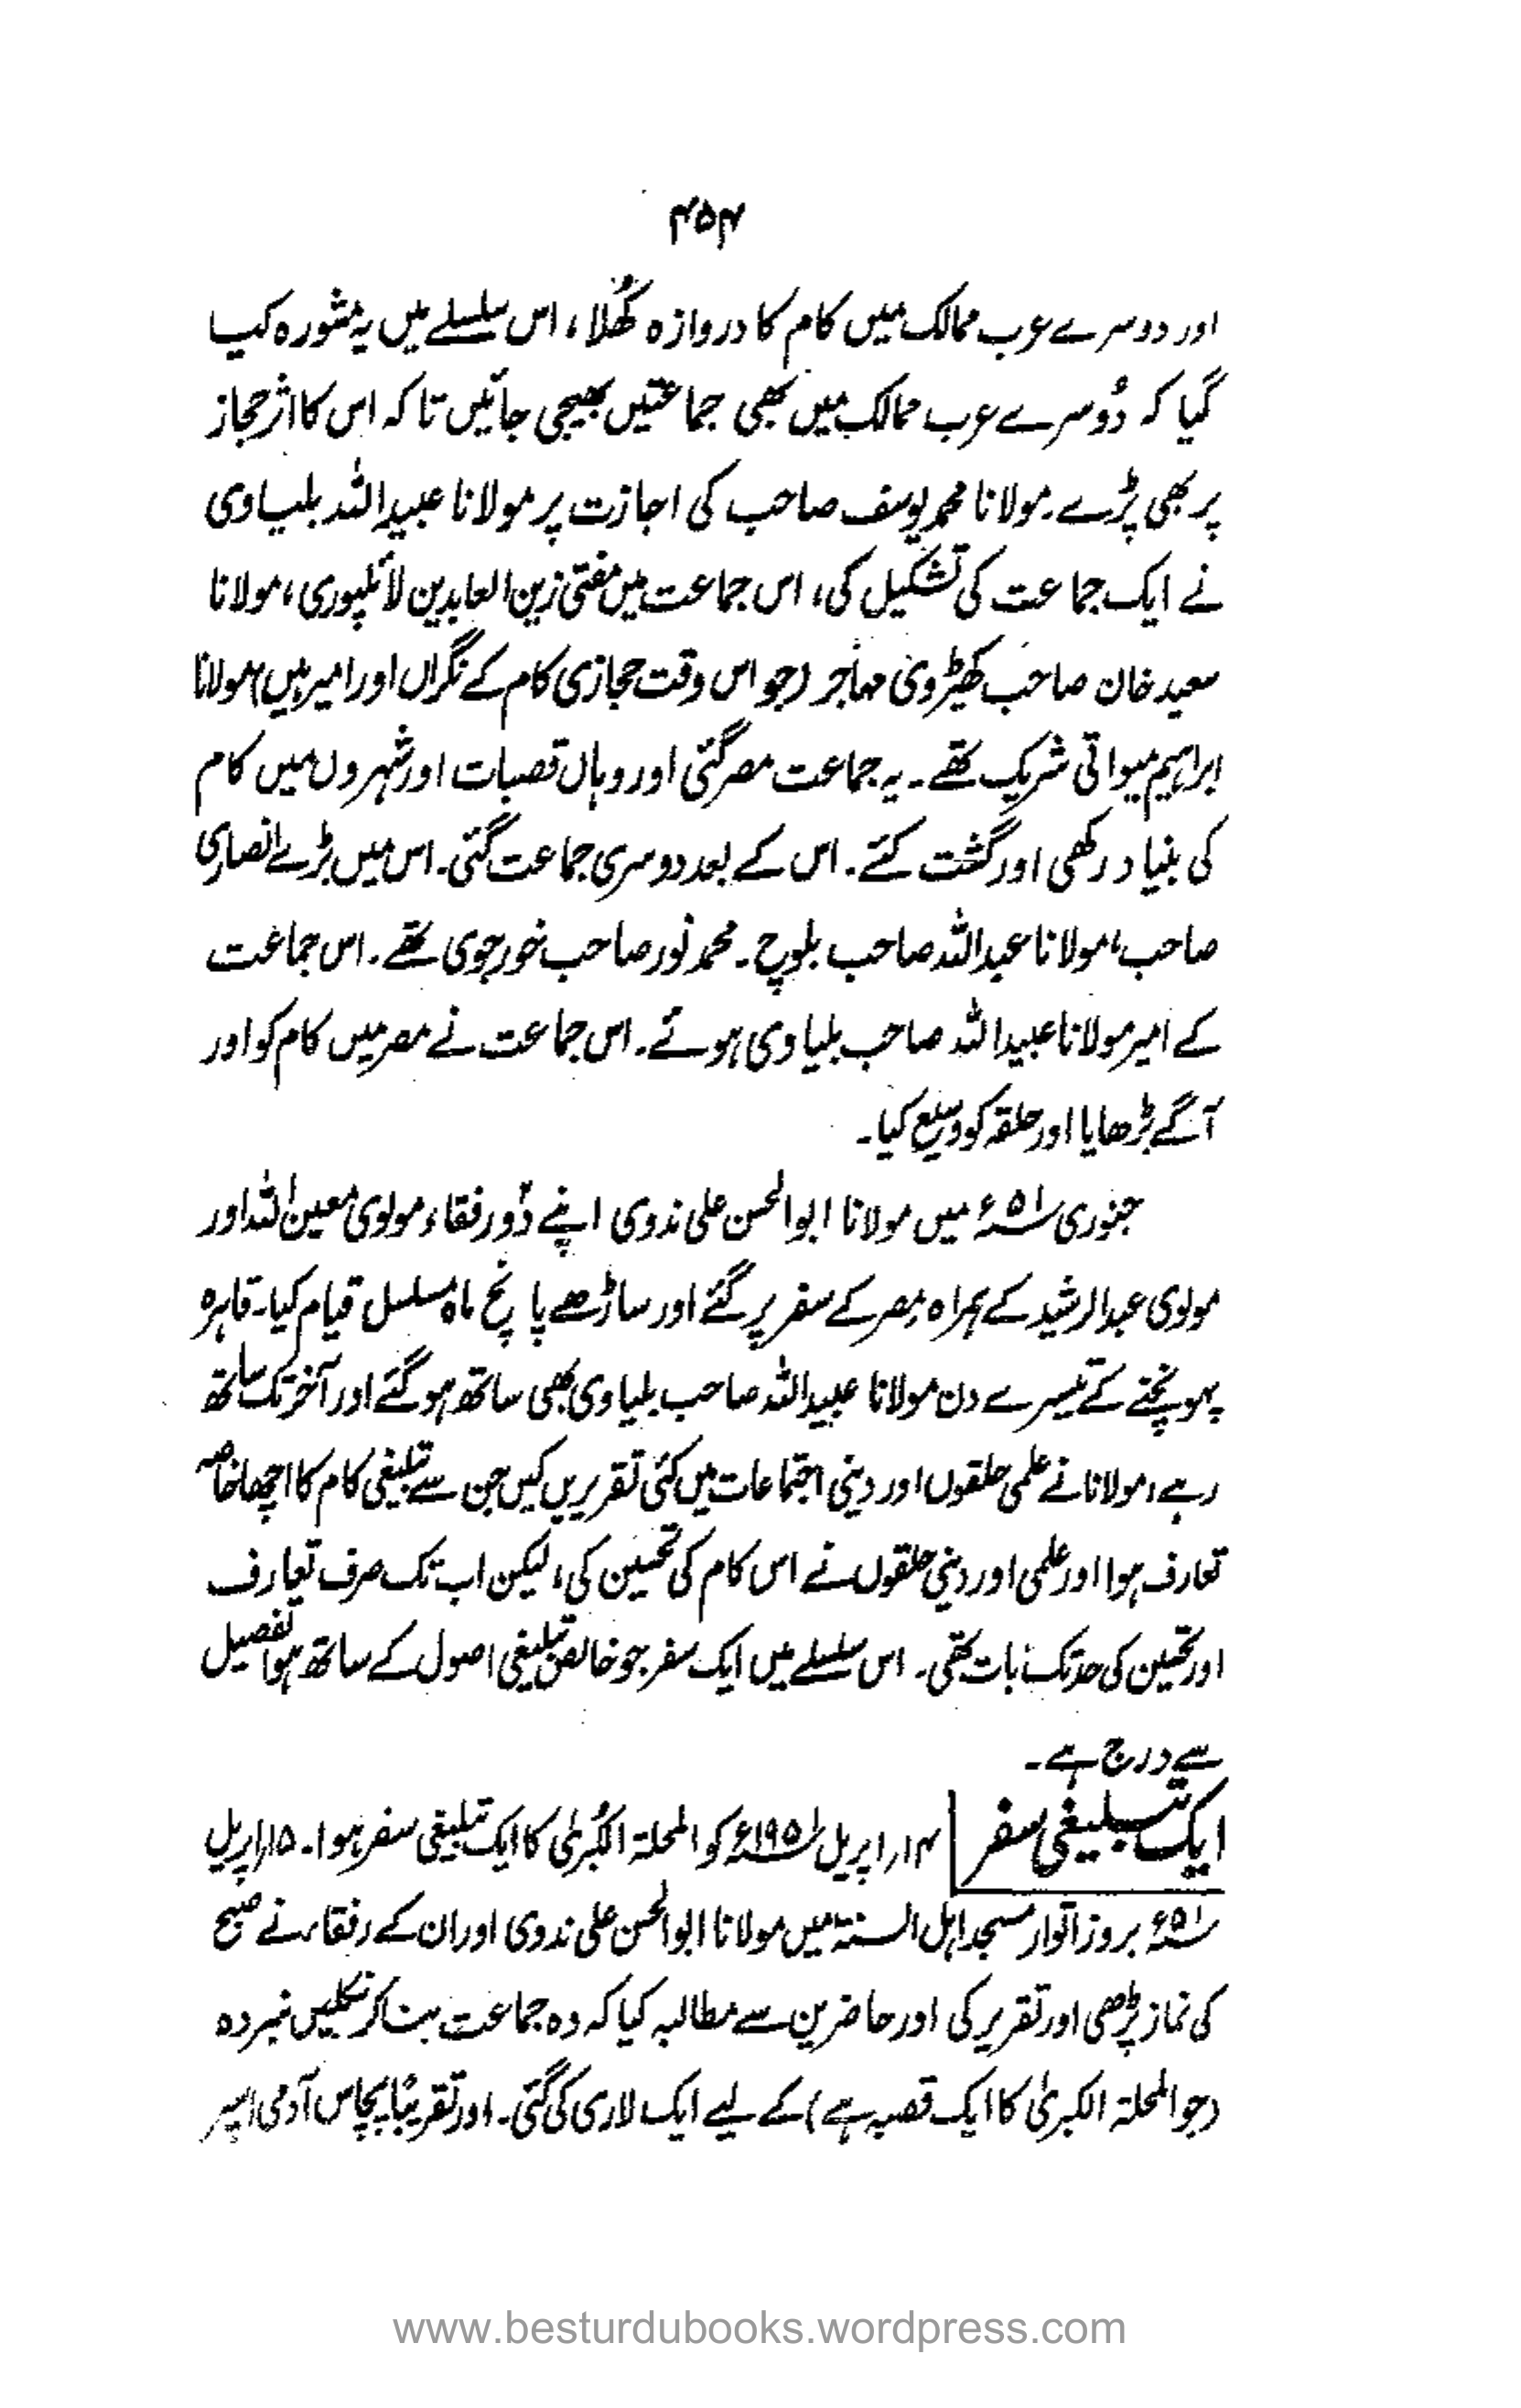 ۴۵۴
اور دوسرے عرب ممالک میں کام کا دروازہ کھُلا، اس سلسلے میں یہ مشورہ کیا
گیا کہ دُوسرے عرب ممالک میں بھی جماعتیں بھیجی جائیں تاکہ اس کا اثر حجاز
پر بھی پڑے۔ مولانا محمد یوسف صاحب کی اجازت پر مولانا عبیداللہ بلیاوی
نے ایک جماعت کی تشکیل کی، اس جماعت میں مفتی زین العابدین لائلپوری، مولانا
سعید خان صاحب کھیڑوی مہاجر (جو اس وقت حجازی کام کے نگراں اور امیر ہیں) مولانا
ابراہیم میواتی شریک تھے۔ یہ جماعت مصر گئی اور وہاں قصبات اور شہروں میں کام
کی بنیاد رکھی اور گشت کئے۔ اس کے بعد دوسری جماعت گئی۔ اس میں بڑے انصاری
صاحب، مولانا عبداللہ صاحب بلوچ۔ محمد نور صاحب خورجوی تھے۔ اس جماعت
کے امیر مولانا عبیداللہ صاحب بلیاوی ہوئے۔ اس جماعت نے مصر میں کام کو اور
آگے بڑھایا اور حلقہ کو وسیع کیا۔
جنوری ۵۱ء میں مولانا ابوالحسن علی ندوی اپنے دُو رفقاء مولوی معین اللہ اور
مولوی عبدالرشید کے ہمراہ مصر کے سفر پر گئے اور ساڑھے پانچ ماہ مسلسل قیام کیا۔ قاہرہ
پہونچنے کے تیسرے دن مولانا عبیداللہ صاحب بلیاوی بھی ساتھ ہوگئے اور آخر تک ساتھ
رہے، مولانا نے علمی حلقوں اور دینی اجتماعات میں کئی تقریریں کیں جن سے تبلیغی کام کا اچھا خاصہ
تعارف ہوا اور علمی اور دینی حلقوں نے اس کام کی تحسین کی، لیکن اب تک صرف تعارف
اور تحسین کی حد تک بات تھی۔ اس سلسلے میں ایک سفر جو خالص تبلیغی اصول کے ساتھ ہوا تفصیل
سے درج ہے۔
ایک تبلیغی سفر ۱۴؍اپریل ۱۹۵۱ء کو المحلۃ الکُبریٰ کا ایک تبلیغی سفر ہوا۔ ۱۵؍اپریل
۵۱ء بروز اتوار مسجد اہل السنۃ میں مولانا ابوالحسن علی ندوی اور ان کے رفقاء نے صبح
کی نماز پڑھی اور تقریر کی اور حاضرین سے مطالبہ کیا کہ وہ جماعت بنا کر نکلیں نمبردہ
(جو المحلۃ الکبریٰ کا ایک قصبہ ہے) کے لیے ایک لاری کی گئی۔ اور تقریباً پچاس آدمی اسپر
www.besturdubooks.wordpress.com